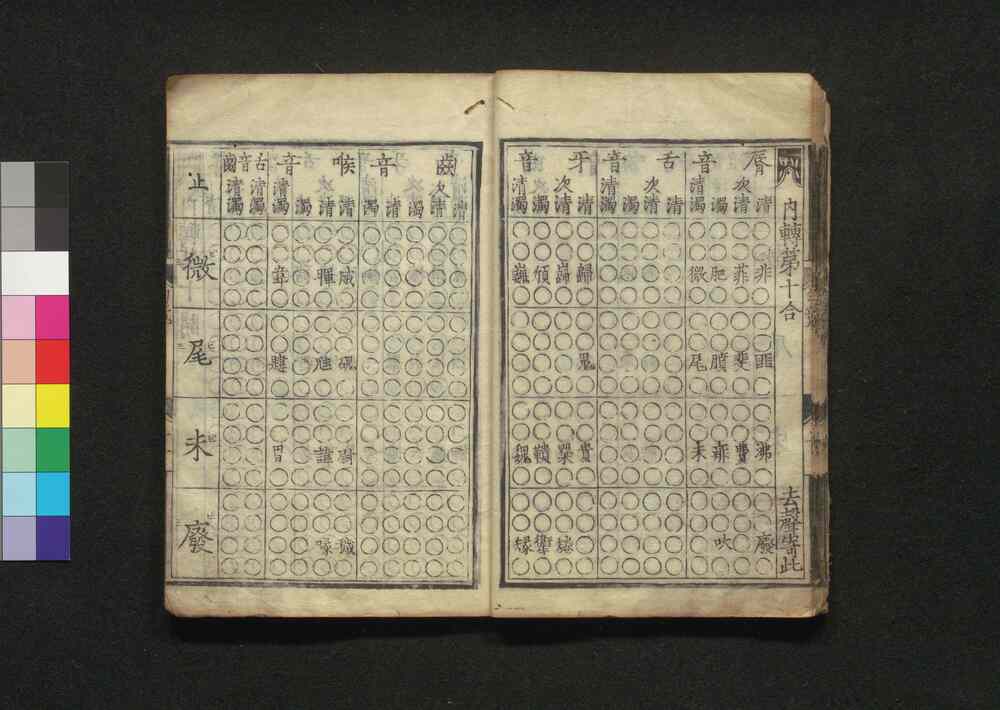 内轉第十合
去聲寄此
唇音
清 非 匪 沸 廢
次清 菲 斐 費
濁 肥 膹 吠
清濁 微 尾 未
舌音
清
次清
濁
清濁
牙音
清 歸 鬼 貴
次清 巋
濁
清濁 巍 魏
齒音
清
次清
濁
清
濁
喉音
清 威 磈 尉 穢
清 暉 虺 諱 喙
濁
清濁 韋 韙 胃
舌音
清濁
齒
清濁
止
微
尾
未
廢